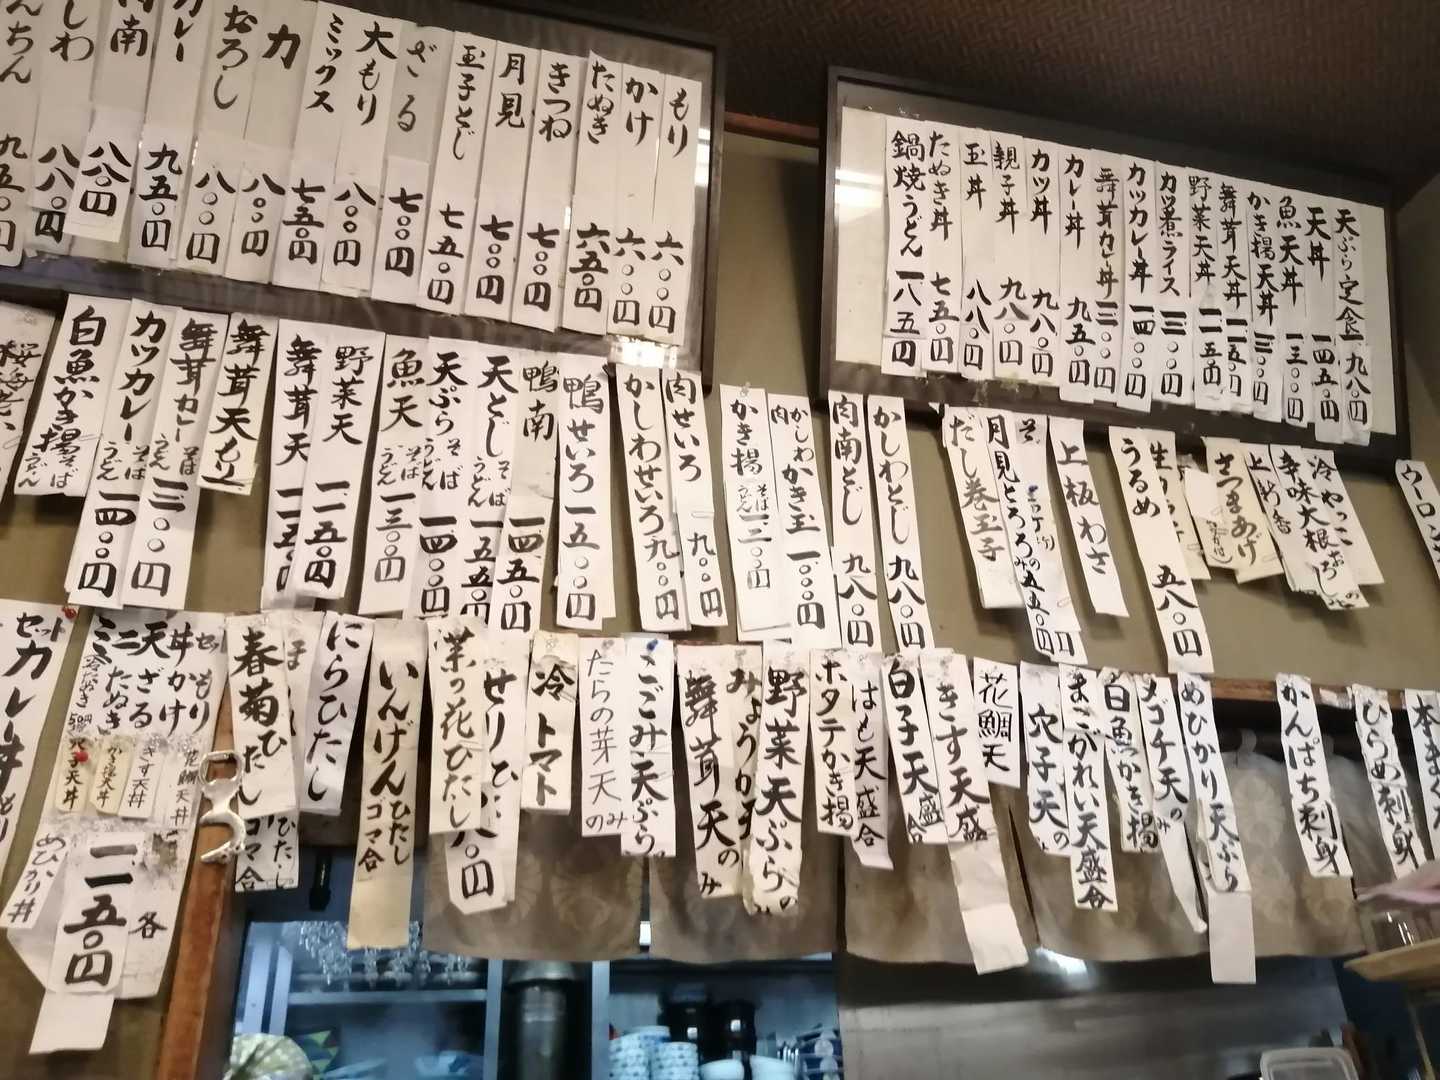 もり 六〇〇円
かけ 六〇〇円
たぬき 六五〇円
きつね 七〇〇円
月見 七〇〇円
玉子とじ 七五〇円
ざる 七〇〇円
大もり 八〇〇円
ミックス 七五〇円
力 八〇〇円
おろし 八〇〇円
カレー 九五〇円
南 八八〇円
しわ 八八〇円
んちん 九五〇円
天ぷら定食 一九八〇円
天丼 一四五〇円
魚天丼 一三〇〇円
かき揚天丼 一三〇〇円
舞茸天丼 一一五〇円
野菜天丼 一一五〇円
カツ煮ライス 一一〇〇円
カツカレー丼 一四〇〇円
舞茸カレー丼 一三〇〇円
カレー丼 九五〇円
カツ丼 九八〇円
親子丼 九八〇円
玉丼 八八〇円
たぬき丼 七五〇円
鍋焼うどん 一八五〇円
ウーロン
冷やっこ
辛味大根おろし
上お新香
さつまあげ
うるめ 五八〇円
上板わさ
月見とろろ 五五〇円
だし巻玉子
かしわとじ 九八〇円
肉南とじ 九八〇円
肉かしわかき玉 一〇〇〇円
かき揚そばうどん 一三〇〇円
肉せいろ 一九〇〇円
かしわせいろ 九〇〇円
鴨せいろ 一五〇〇円
鴨南 一四五〇円
天とじそばうどん 一五五〇円
天ぷらそばうどん 一四〇〇円
魚天そばうどん 一三〇〇円
野菜天 一一五〇円
舞茸天 一一五〇円
舞茸天もり
舞茸カレーそばうどん 一三〇〇円
カツカレーそばうどん 一四〇〇円
白魚かき揚そばうどん
桜海老
本まぐろ
ひらめ刺身
かんぱち刺身
めひかり天ぷら
メゴチ天のみ
白魚かき揚
まこがれい天盛合
穴子天の
花鯛天
きす天盛
白子天盛合
はも天盛合
ホタテかき揚
野菜天ぷらのみ
みょうが天
舞茸天のみ
こごみ天ぷら
たらの芽天のみ
冷トマト
せりひたし
菜の花ひたし
いんげんひたしゴマ合
にらひたし
春菊ひたしゴマ合
丼セット もりかけ
天ざる
ミニたぬき
花鯛天丼
きす天丼
かき揚天丼
穴子天丼
めひかり丼
各 一一五〇円
セットカレー丼 もり